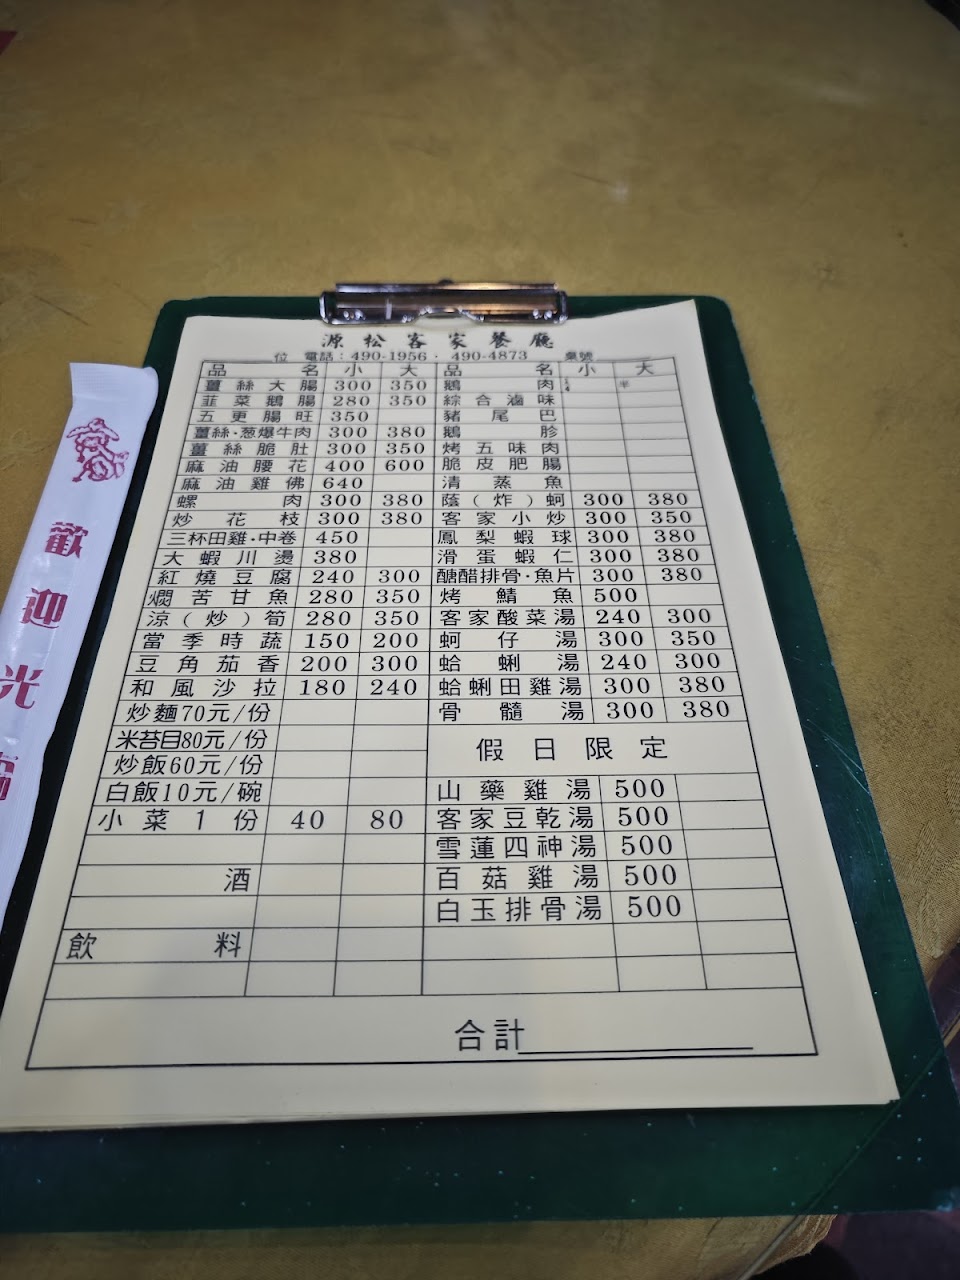 源松客家餐廳
位 電話：490-1956．490-4873 桌號
品名 小 大 品名 小 大
薑絲大腸 300 350 鵝肉 1/4 半
韮菜鵝腸 280 350 綜合滷味
五更腸旺 350 豬尾巴
薑絲·葱爆牛肉 300 380 鵝胗
薑絲脆肚 300 350 烤五味肉
麻油腰花 400 600 脆皮肥腸
麻油雞佛 640 清蒸魚
螺肉 300 380 蔭(炸)蚵 300 380
炒花枝 300 380 客家小炒 300 350
三杯田雞·中卷 450 鳳梨蝦球 300 380
大蝦川燙 380 滑蛋蝦仁 300 380
紅燒豆腐 240 300 醣醋排骨·魚片 300 380
燜苦甘魚 280 350 烤鯖魚 500
涼(炒)筍 280 350 客家酸菜湯 240 300
當季時蔬 150 200 蚵仔湯 300 350
豆角茄香 200 300 蛤蜊湯 240 300
和風沙拉 180 240 蛤蜊田雞湯 300 380
炒麵70元/份 骨髓湯 300 380
米苔目80元/份 假日限定
炒飯60元/份
白飯10元/碗 山藥雞湯 500
小菜1份 40 80 客家豆乾湯 500
雪蓮四神湯 500
酒 百菇雞湯 500
白玉排骨湯 500
飲料
合計
歡迎光